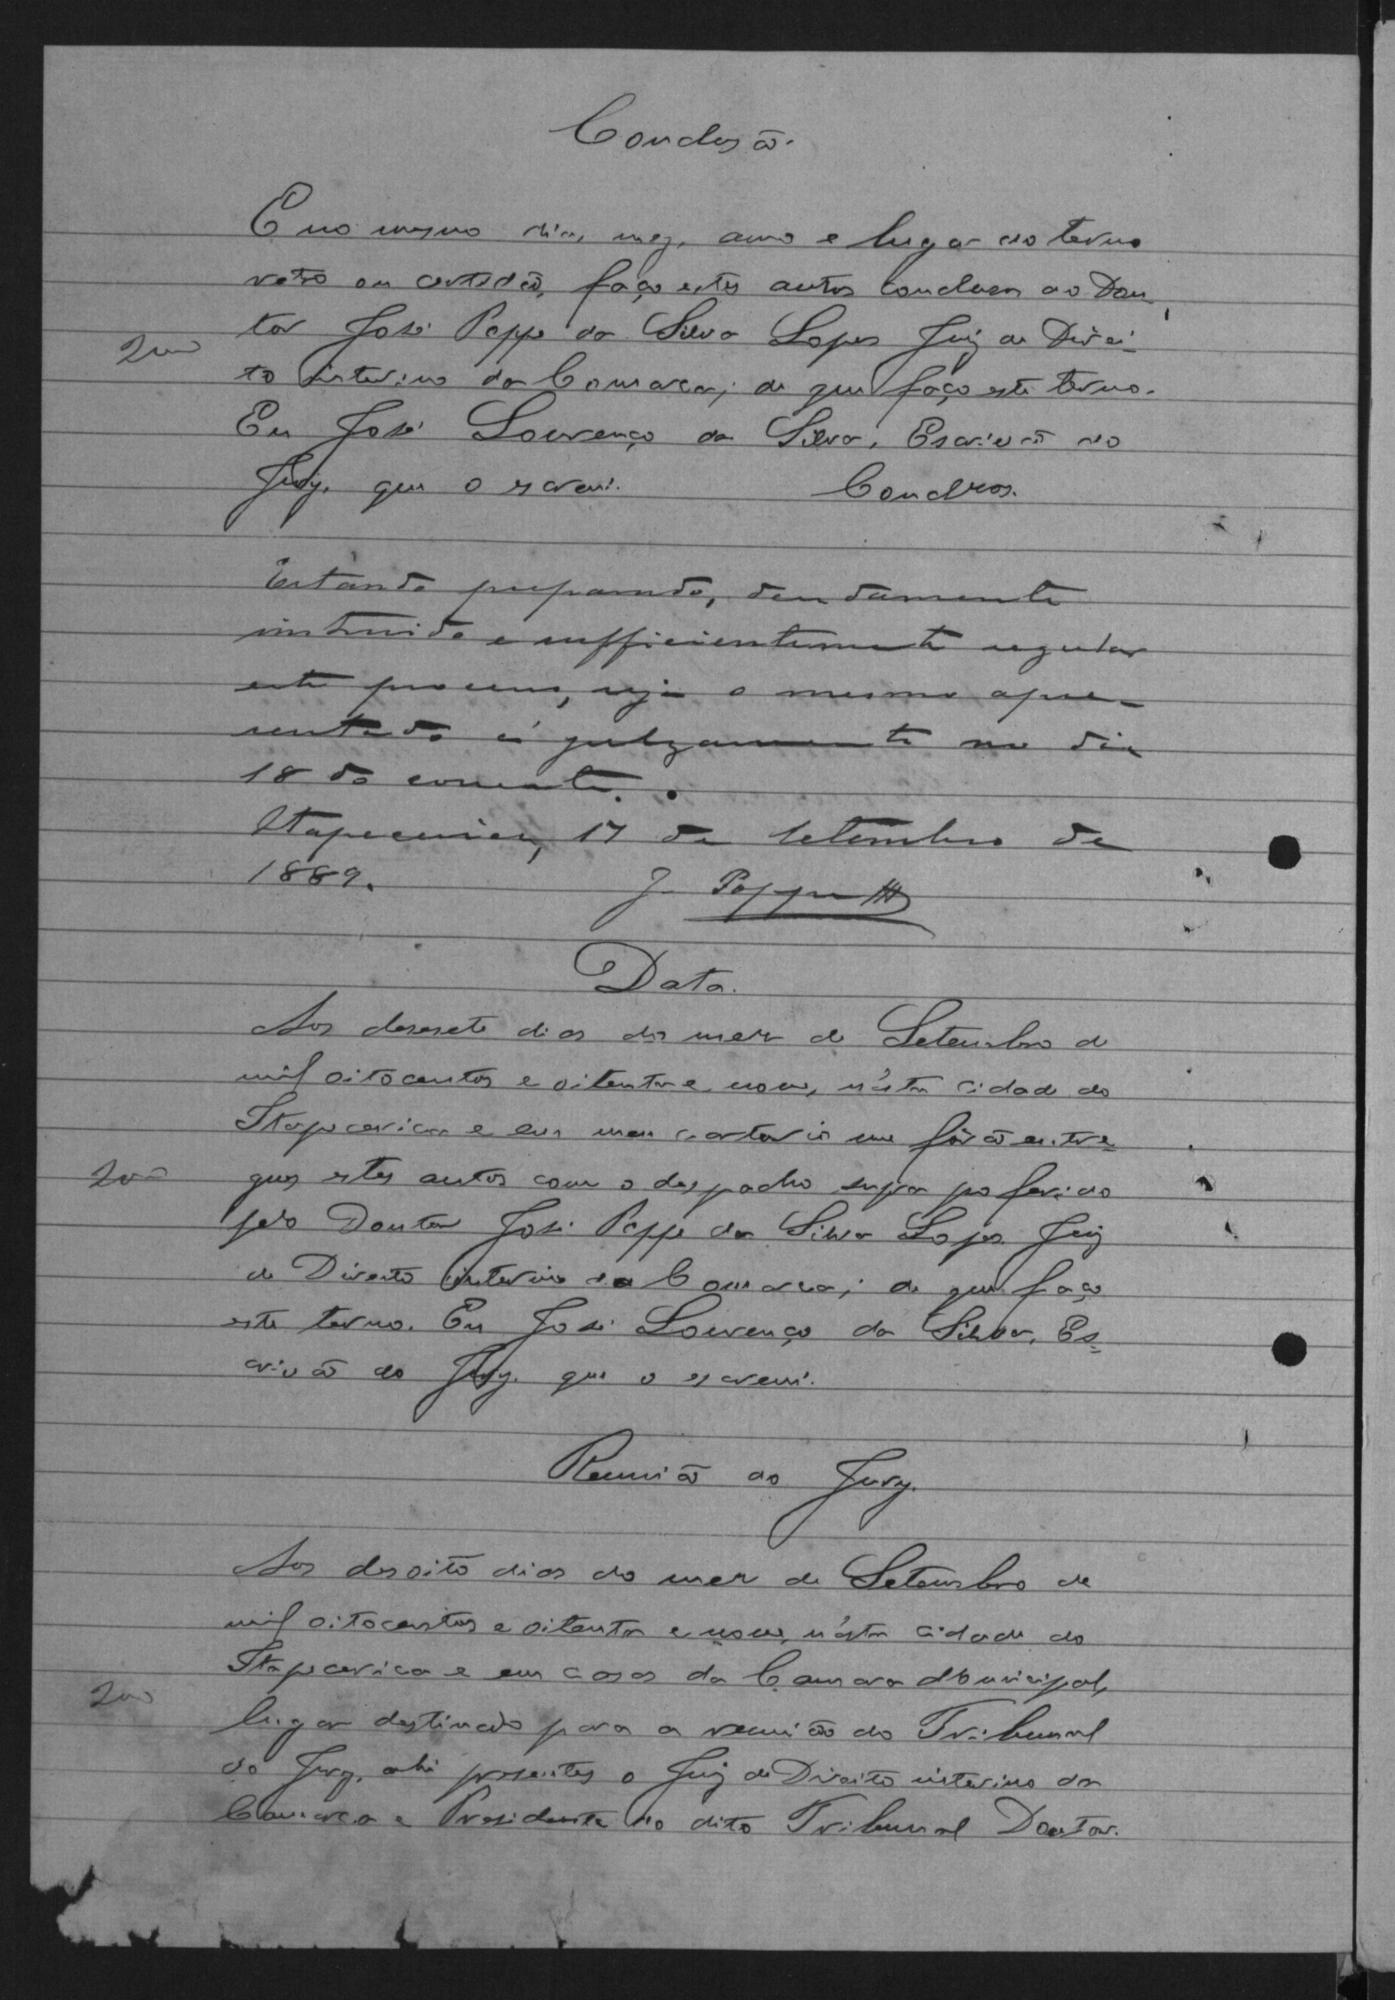 Conclusão.
E no mesmo dia, mez, anno e lugar do termo
retro ou certidão, faço estes autos conclusos ao Dou
tor José Poppe da Silva Lopes Juiz de Direi-
200
to interino da Comarca; de que faço este termo.
Eu José Lourenço da Silva, Escrivão do
Jury, que o escrevi. Conclsos.
Estando preparado, devidamente
instruido e sufficientemente regular
este processo, seja o mesmo apre-
sentado á julgamento no dia
18 do corrente.
Itapecerica, 17 de Setembro de
1889.
J. Poppe
Data.
Aos desesete dias do mez de Setembro de
mil oitocentos e oitenta e nove, n'esta cidade de
Itapecerica e em meu cartorio me forão entre-
200
gues estes autos com o despacho supra proferido
pelo Doutor José Poppe da Silva Lopes Juiz
de Direito interino da Comarca; de que faço
este termo. Eu José Lourenço da Silva, Es-
crivão do Jury, que o escrevi.
Reunião do Jury.
Aos desoito dias do mez de Setembro de
mil oitocentos e oitenta e nove, n'esta cidade de
Itapecerica e em casa da Camara Municipal,
200
lugar destinado para a reunião do Tribunal
do Jury, ahi presentes o Juiz de Direito interino da
Comarca e Presidente do dito Tribunal Doutor.